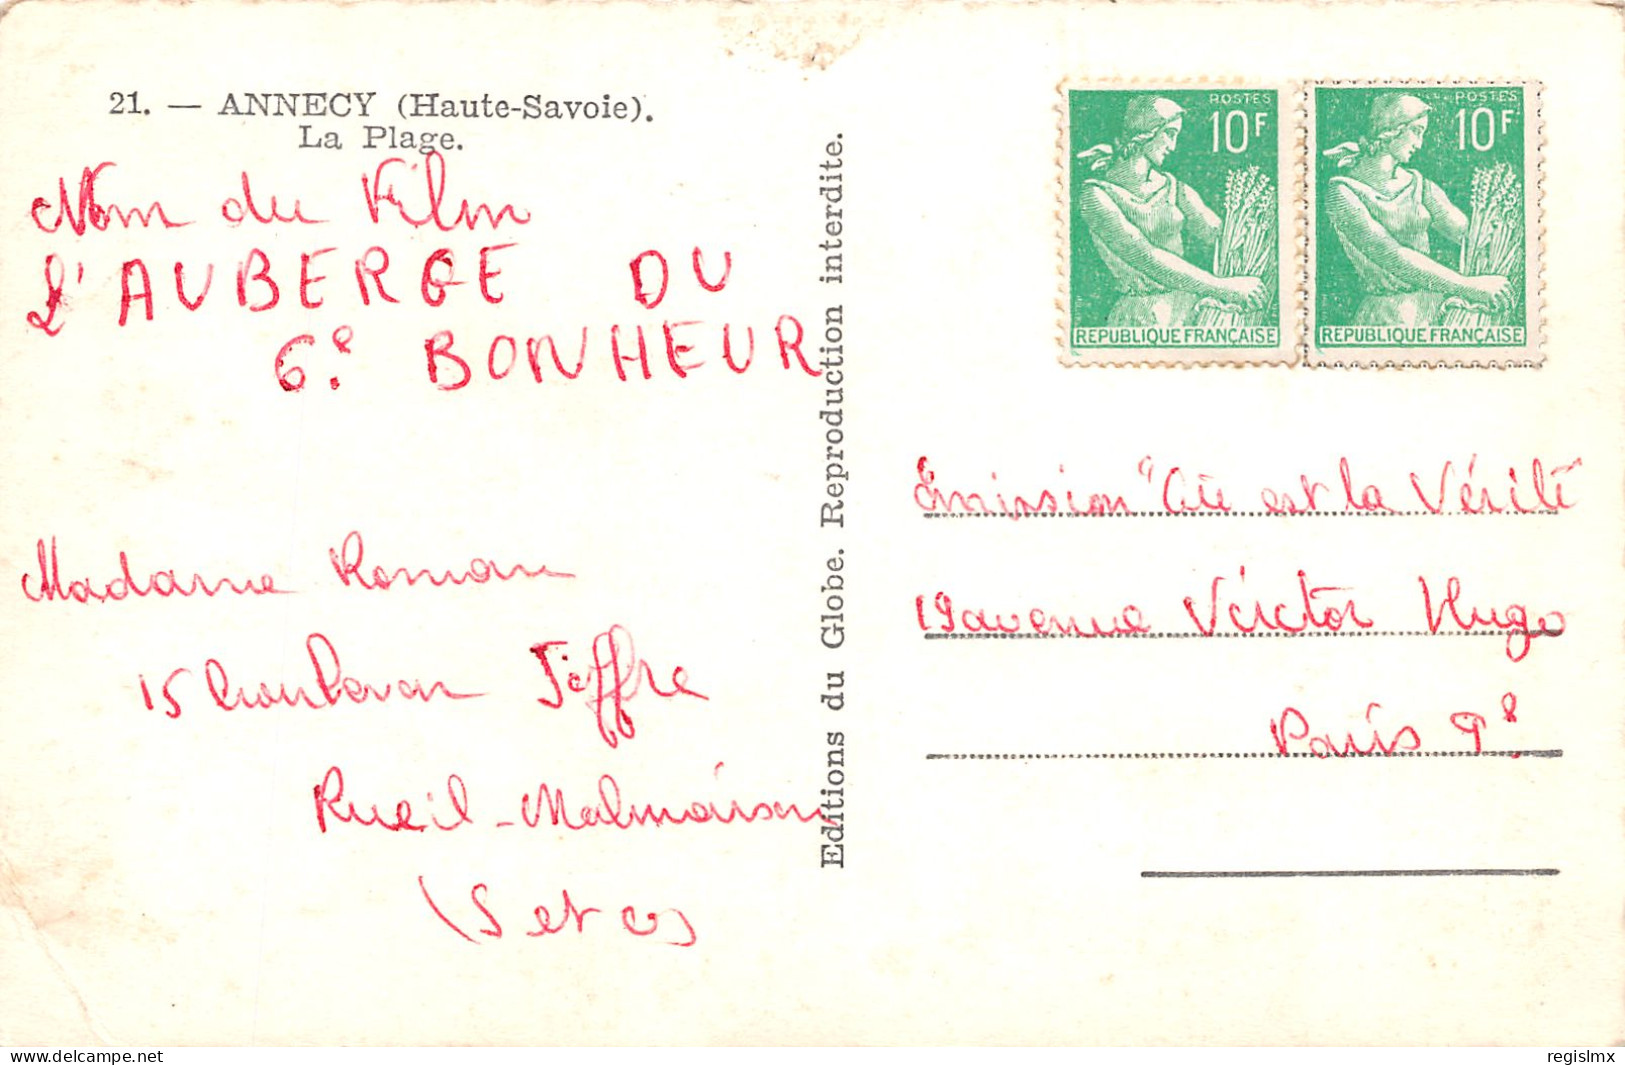 21. — ANNECY (Haute-Savoie).
La Plage.
Nom du Film
L'AUBERGE DU
6e BONHEUR
Madame Roman
15 boulevar Joffre
Rueil-Malmaison
(S et O)
Editions du Globe. Reproduction interdite.
POSTES
10F
REPUBLIQUE FRANÇAISE
POSTES
10F
REPUBLIQUE FRANÇAISE
Emission "Cte est la Vérité
19 avenue Victor Hugo
Paris 9e
delcampe.net
regislmx